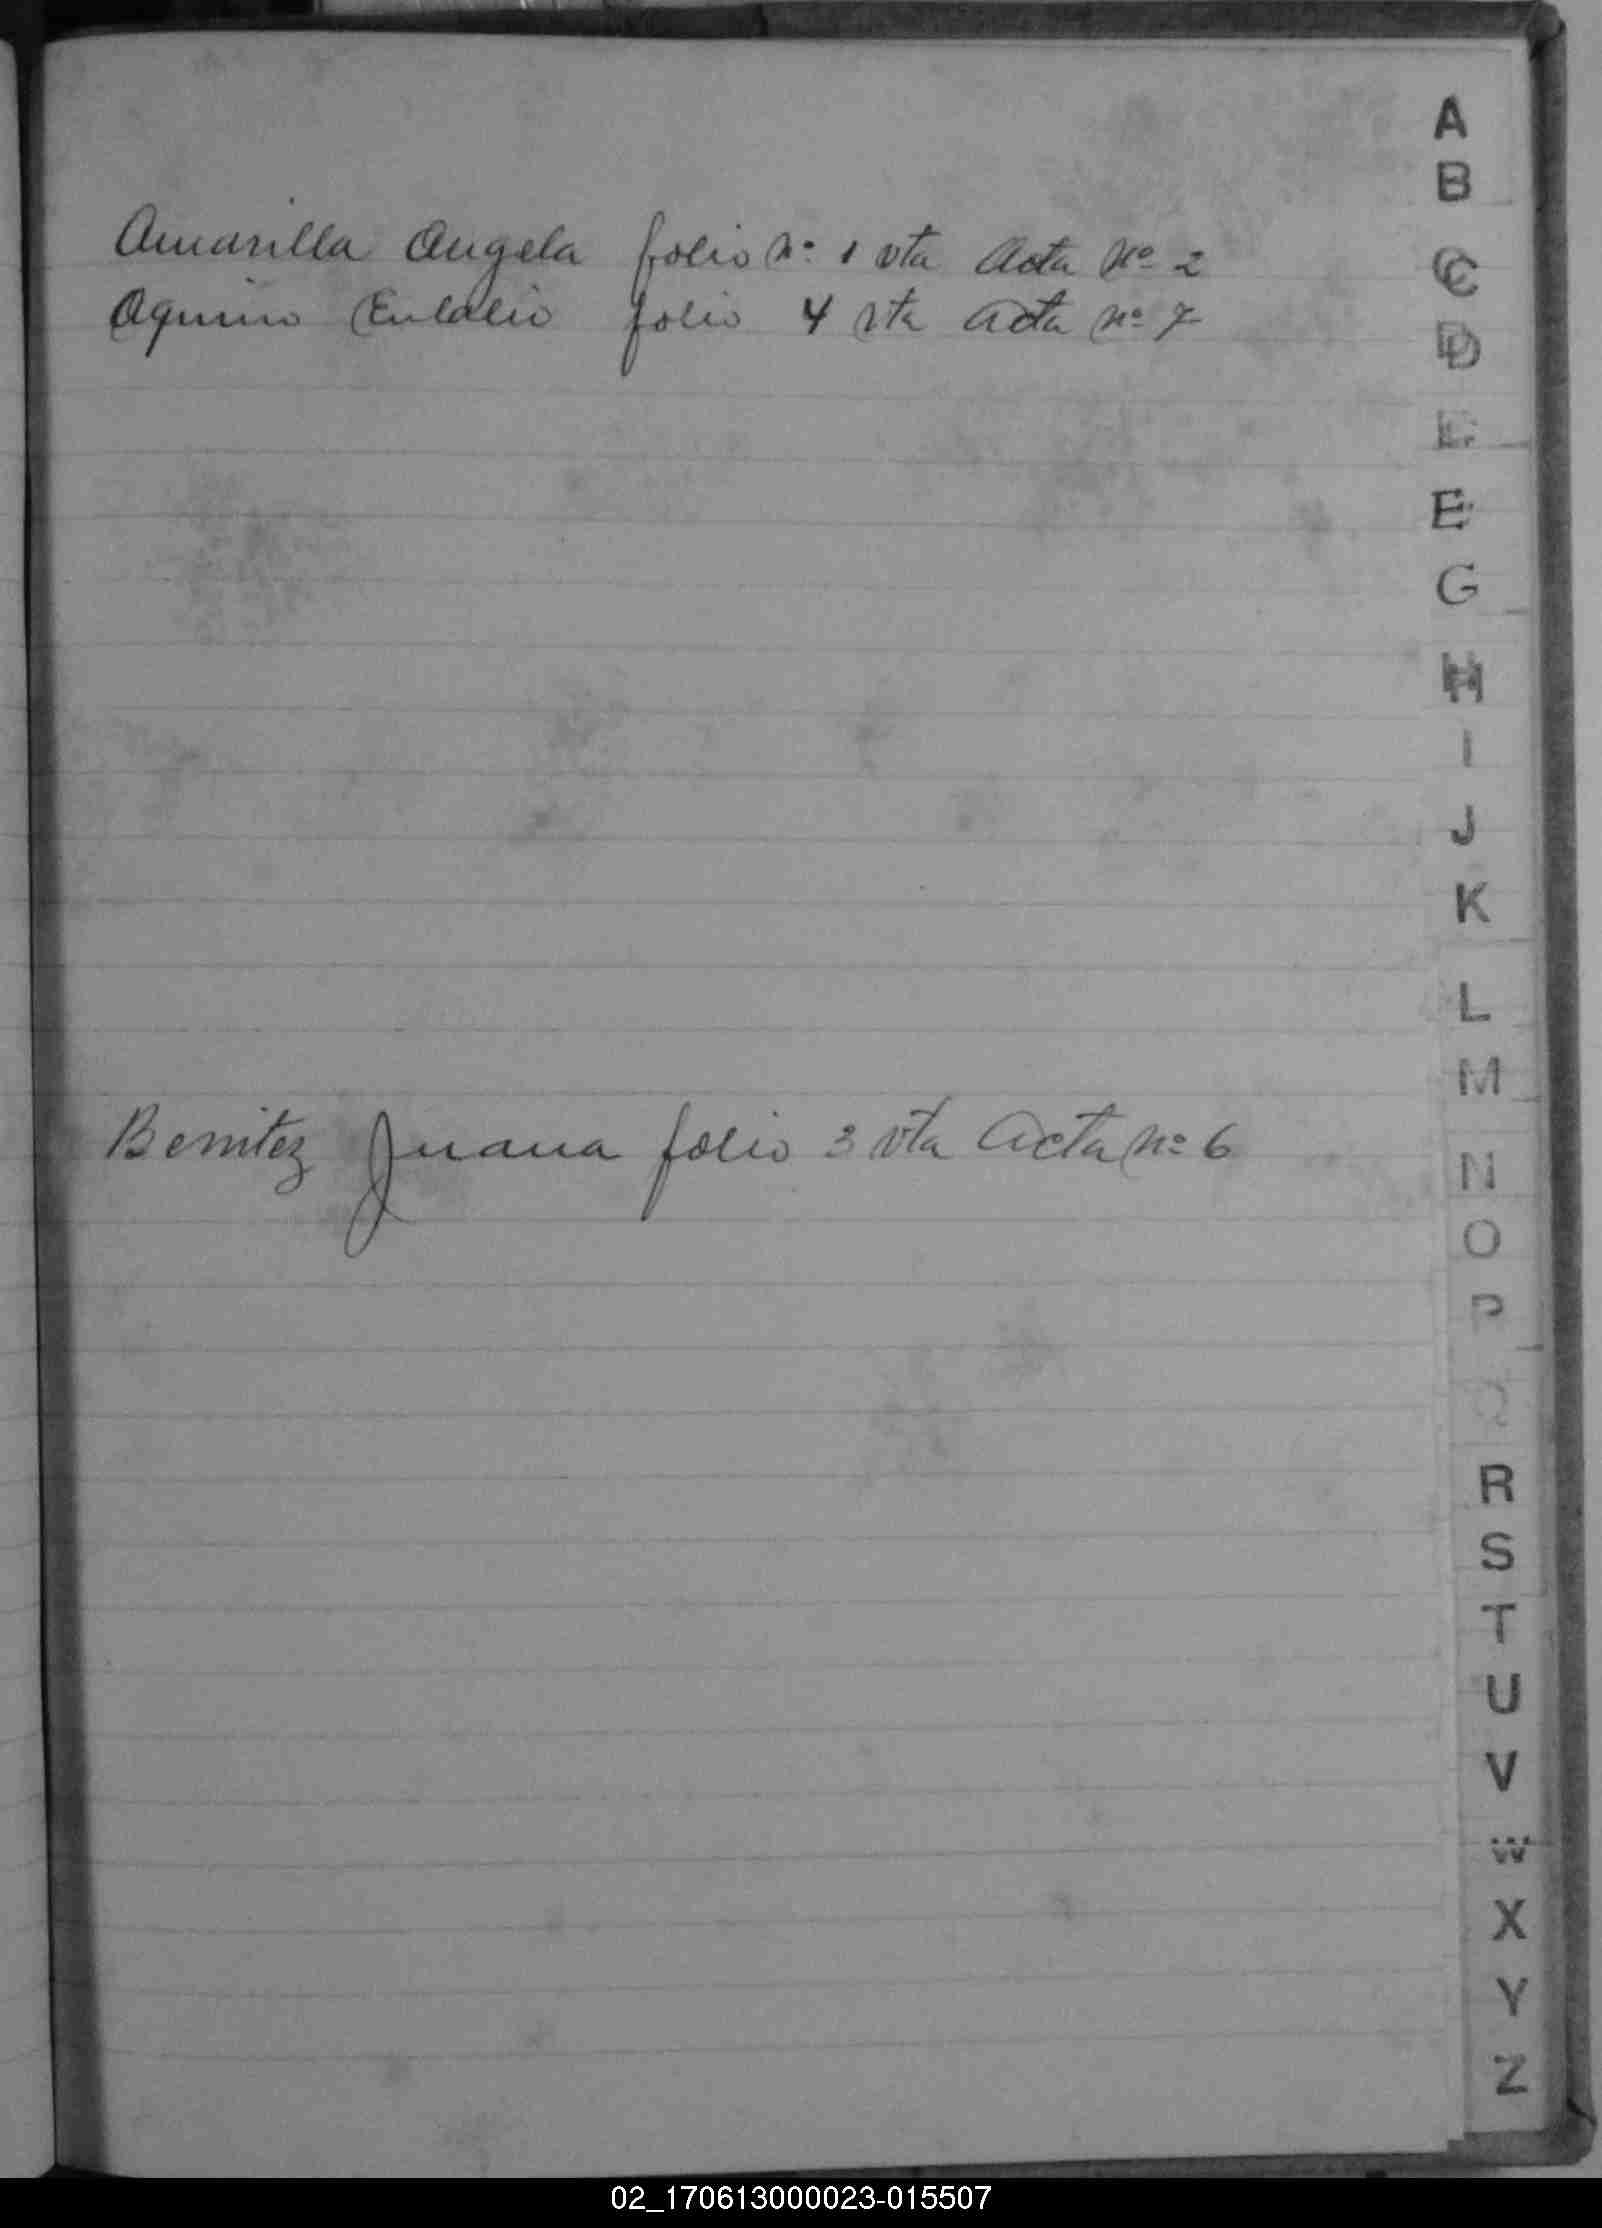 Amarilla Angela folio nº 1 vta Acta Nº 2
Aquino Eulalio folio 4 vta Acta nº 7
Benitez Juana folio 3 vta Acta nº 6
A
B
C
D
E
E
G
H
I
J
K
L
M
N
O
P
Q
R
S
T
U
V
W
X
Y
Z
02_170613000023-015507